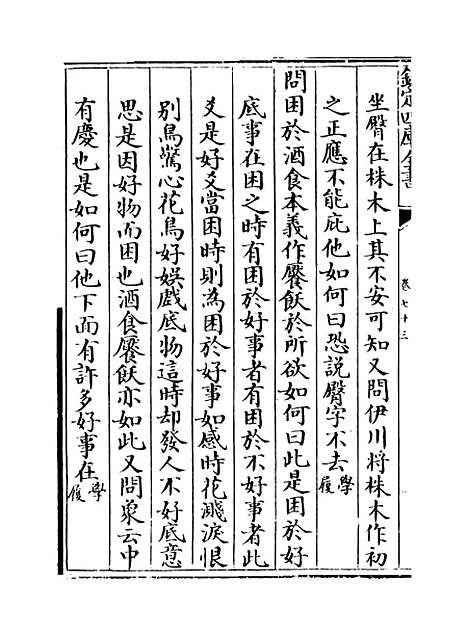 欽定四庫全書
卷七十三
坐臀在株木上其不安可知又問伊川將株木作初
之正應不能庇他如何曰恐說臀字不去學履
問困於酒食本義作饜飫於所欲如何曰此是困於好
底事在困之時有困於好事者有困於不好事者此
爻是好爻當困時則為困於好事如感時花濺淚恨
別鳥驚心花鳥好娱戲底物這時却發人不好底意
思是因好物而困也酒食饜飫亦如此又問象云中
有慶也是如何曰他下面有許多好事在學履